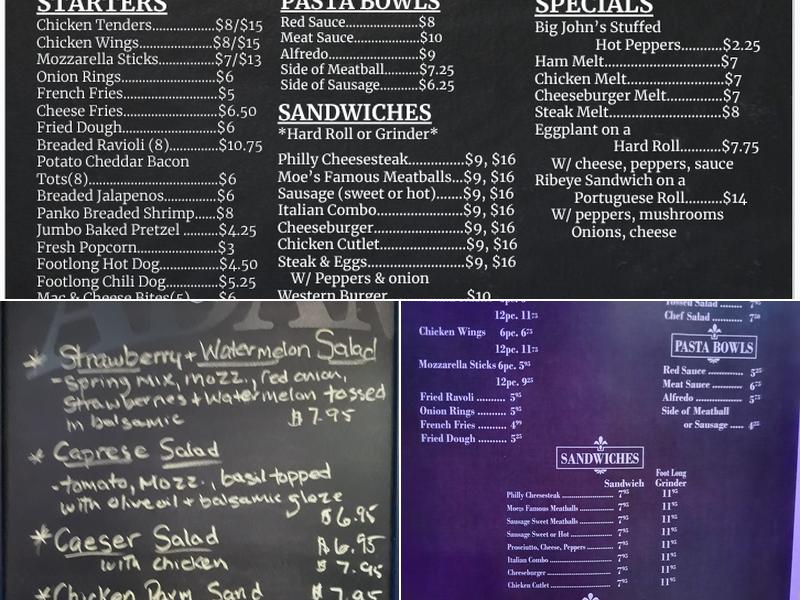 STARTERS
Chicken Tenders...............$8/$15
Chicken Wings.............$8/$15
Mozzarella Sticks..........$7/$13
Onion Rings.........$6
French Fries.......$5
Cheese Fries........$6.50
Fried Dough........$6
Breaded Ravioli (8)..........$10.75
Potato Cheddar Bacon
Tots(8)...............................$6
Breaded Jalapenos.........$6
Panko Breaded Shrimp.....$8
Jumbo Baked Pretzel .........$4.25
Fresh Popcorn.............$3
Footlong Hot Dog..........$4.50
Footlong Chili Dog.........$5.25
Mac & Cheese Bites(5).......$6
PASTA BOWLS
Red Sauce...............$8
Meat Sauce............$10
Alfredo..................$9
Side of Meatball....$7.25
Side of Sausage.....$6.25
SANDWICHES
*Hard Roll or Grinder*
Philly Cheesesteak..............$9, $16
Moe's Famous Meatballs...$9, $16
Sausage (sweet or hot).......$9, $16
Italian Combo.....................$9, $16
Cheeseburger......................$9, $16
Chicken Cutlet....................$9, $16
Steak & Eggs........................$9, $16
W/ Peppers & onion
Western Burger..............$10
SPECIALS
Big John's Stuffed
Hot Peppers..........$2.25
Ham Melt....................$7
Chicken Melt................$7
Cheeseburger Melt.......$7
Steak Melt...................$8
Eggplant on a
Hard Roll..........$7.75
W/ cheese, peppers, sauce
Ribeye Sandwich on a
Portuguese Roll.........$14
W/ peppers, mushrooms
Onions, cheese
* Strawberry + Watermelon Salad
- Spring Mix, Mozz., red onion,
Strawberries + Watermelon tossed
in balsamic
$7.95
* Caprese Salad
- tomato, Mozz., basil topped
with olive oil + balsamic glaze
$6.95
* Caeser Salad $6.95
with chicken $7.95
* Chicken Parm Sand $7.95
12pc. 11.75
Chicken Wings 6pc. 6.75
12pc. 11.75
Mozzarella Sticks 6pc. 5.95
12pc. 9.25
Fried Ravoli ......... 5.95
Onion Rings ......... 5.95
French Fries ......... 4.99
Fried Dough ......... 5.25
Tossed Salad
Chef Salad ........... 7.50
PASTA BOWLS
Red Sauce ............ 5.25
Meat Sauce .......... 6.75
Alfredo ................ 5.75
Side of Meatball
or Sausage ..... 4.25
SANDWICHES
Sandwich Foot Long Grinder
Philly Cheesesteak ................ 7.95 11.95
Moe's Famous Meatballs ........ 7.95 11.95
Sausage Sweet Meatballs ....... 7.95 11.95
Sausage Sweet or Hot ............ 7.95 11.95
Prosciutto, Cheese, Peppers .... 7.95 11.95
Italian Combo ...................... 7.95 11.95
Cheeseburger ....................... 7.95 11.95
Chicken Cutlet ..................... 7.95 11.95